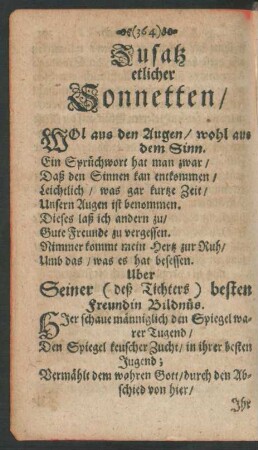 (364)
Zusatz
etlicher
Sonnetten/
WOl aus den Augen/ wohl aus
dem Sinn.
Ein Sprüchwort hat man zwar/
Daß den Sinnen kan entkommen/
Leichtlich/ was gar kurtze Zeit/
Unsern Augen ist benommen.
Dieses laß ich andern zu/
Gute Freunde zu vergessen.
Nimmer kommt mein Hertz zur Ruh/
Umb das/ was es hat besessen.
Uber
Seiner (deß Tichters) besten
Freundin Bildnüs.
HIer schaue männiglich den Spiegel wa-
rer Tugend/
Den Spiegel keuscher Zucht/ in ihrer besten
Jugend;
Vermählt dem wahren Gott/ durch den Ab-
schied von hier/
Ihr